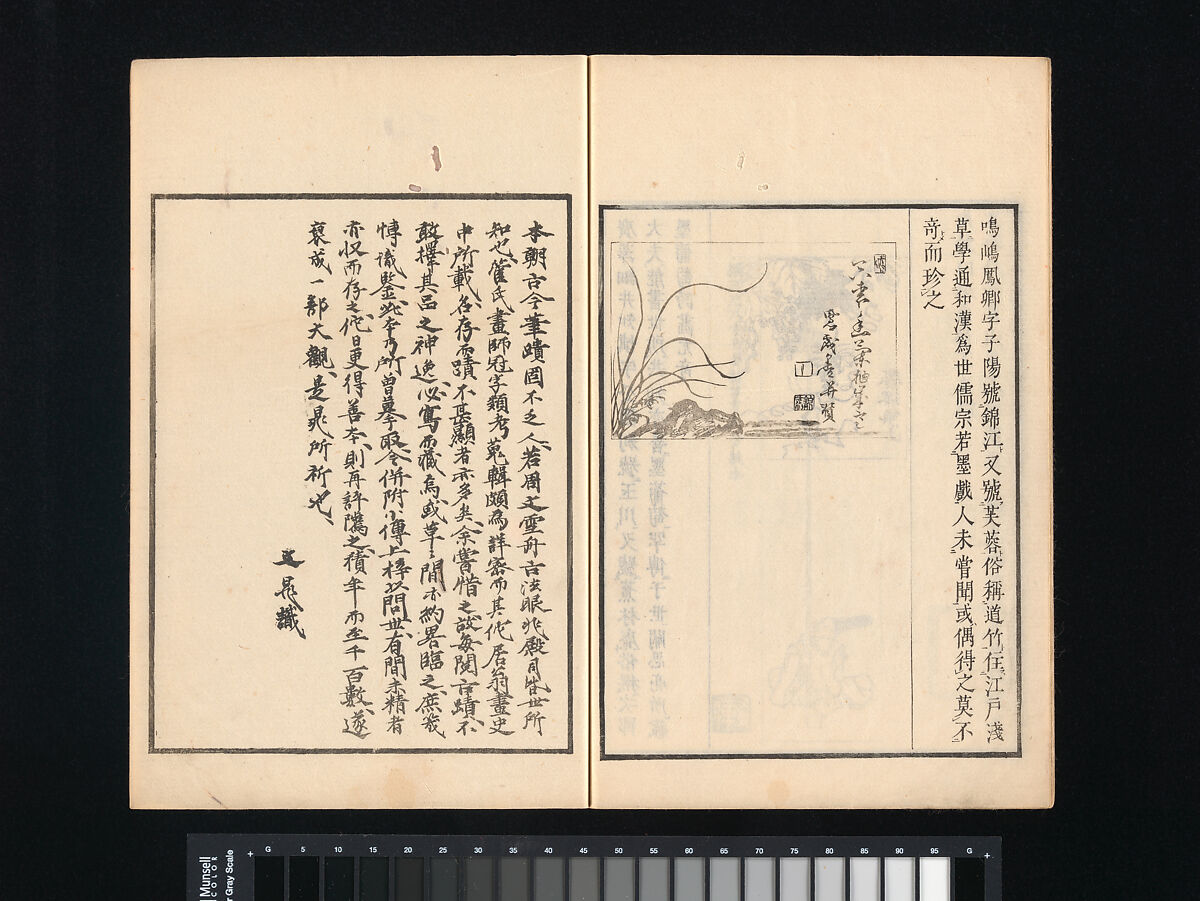 鳴嶋鳳卿字子陽號錦江又號芙蓉俗稱道竹住江戸淺
草學通和漢爲世儒宗若墨戲人未嘗聞或偶得之莫不
竒而珍之
本朝古今筆蹟固不乏人若周文雪舟古法眼兆殿司皆世所
知也管氏畫師冠字類考蒐輯頗爲詳密而其佗居翁畫史
中所載名存而蹟不甚顯者亦多矣余嘗惜之故每閱古蹟不
敢擇其品之神逸必寫而藏焉或草〻間亦約畧臨之庶幾
博識鑒此本乃所曾摹取今併附小傳上梓以問世有間未精者
亦收而存之佗日更得善本則再詳隲之積年而至千百數遂
裒成一部大觀是晁所祈也
文晁識
Munsell
COLOR
r Gray Scale
G 5 10 15 20 25 30 35 40 45 50 55 60 65 70 75 80 85 90 95 G